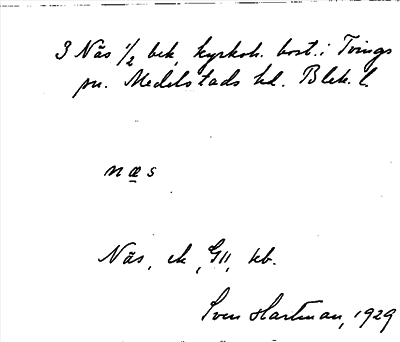 3 Näs 1/2 bek, kyrkoh. bost. i Tvings
sn. Medelstads hd. Blek. l.
næs
Näs, ek, GII, kb.
Sven Hartman, 1929